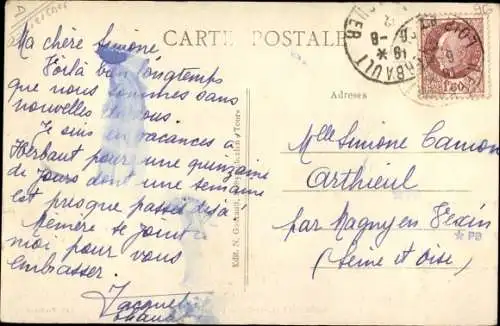 CARTE POSTALE
Adresses
Ma chère Simone
Voilà bien longtemps
que nous sommes sans
nouvelles de vous.
Je suis en vacances à
Herbaut pour une quinzaine
de jours dont une semaine
est presque passée déjà
Mémère se joint
moi pour vous
embrasser.
Jacquet
Edit. N. G
Tours
Mlle Simone Camon
Arthieul
par Magny en Vexin
(Seine et Oise)
1F50
96